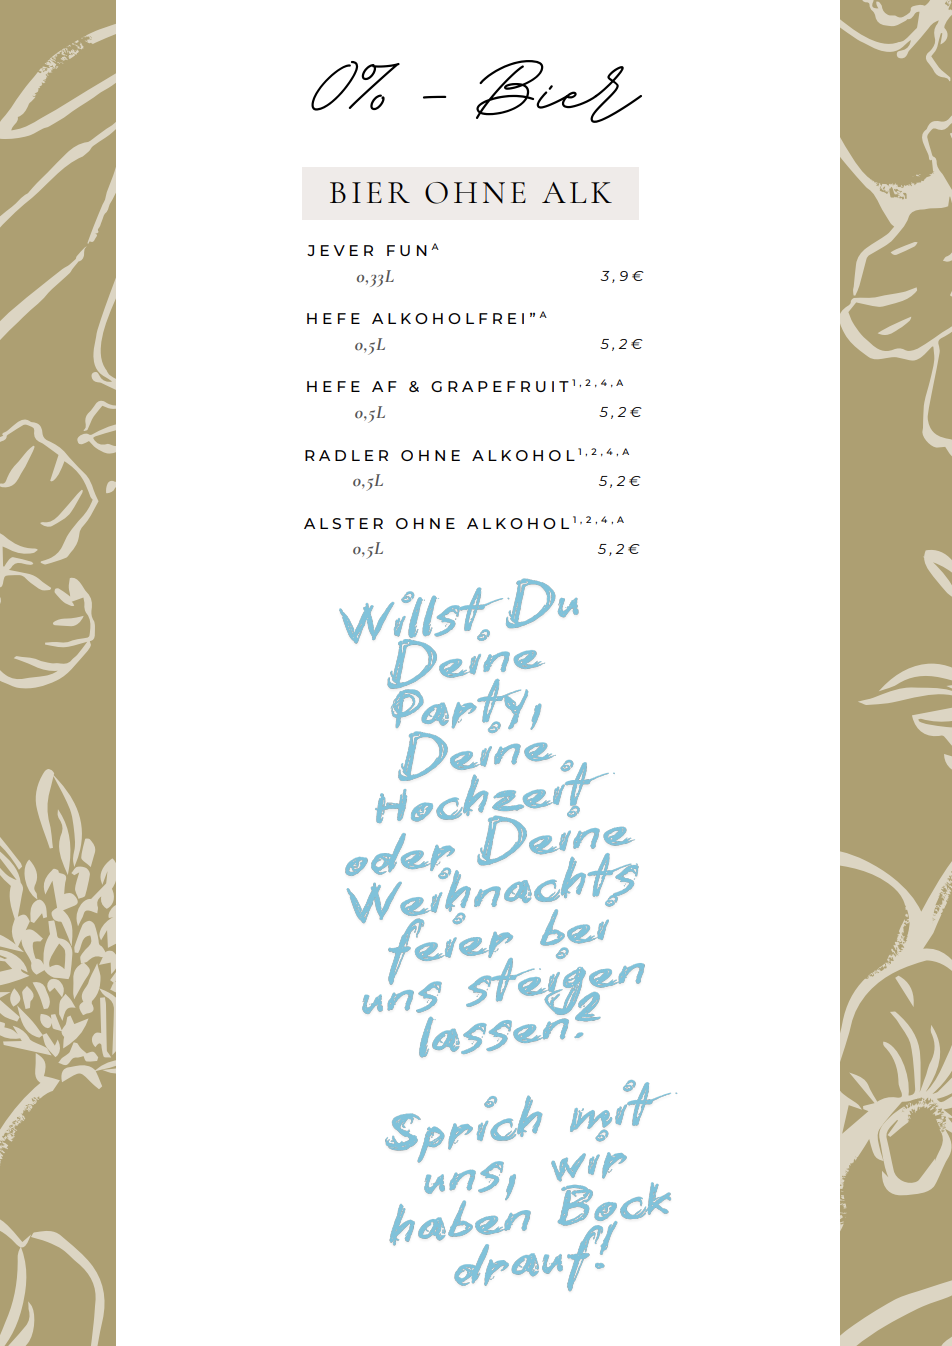 0% - Bier
BIER OHNE ALK
JEVER FUNᴬ
0,33L 3,9€
HEFE ALKOHOLFREI”ᴬ
0,5L 5,2€
HEFE AF & GRAPEFRUIT¹,²,⁴,ᴬ
0,5L 5,2€
RADLER OHNE ALKOHOL¹,²,⁴,ᴬ
0,5L 5,2€
ALSTER OHNE ALKOHOL¹,²,⁴,ᴬ
0,5L 5,2€
Willst Du
Deine
Party,
Deine
Hochzeit
oder Deine
Weihnachts
feier bei
uns steigen
lassen?
Sprich mit
uns, wir
haben Bock
drauf!